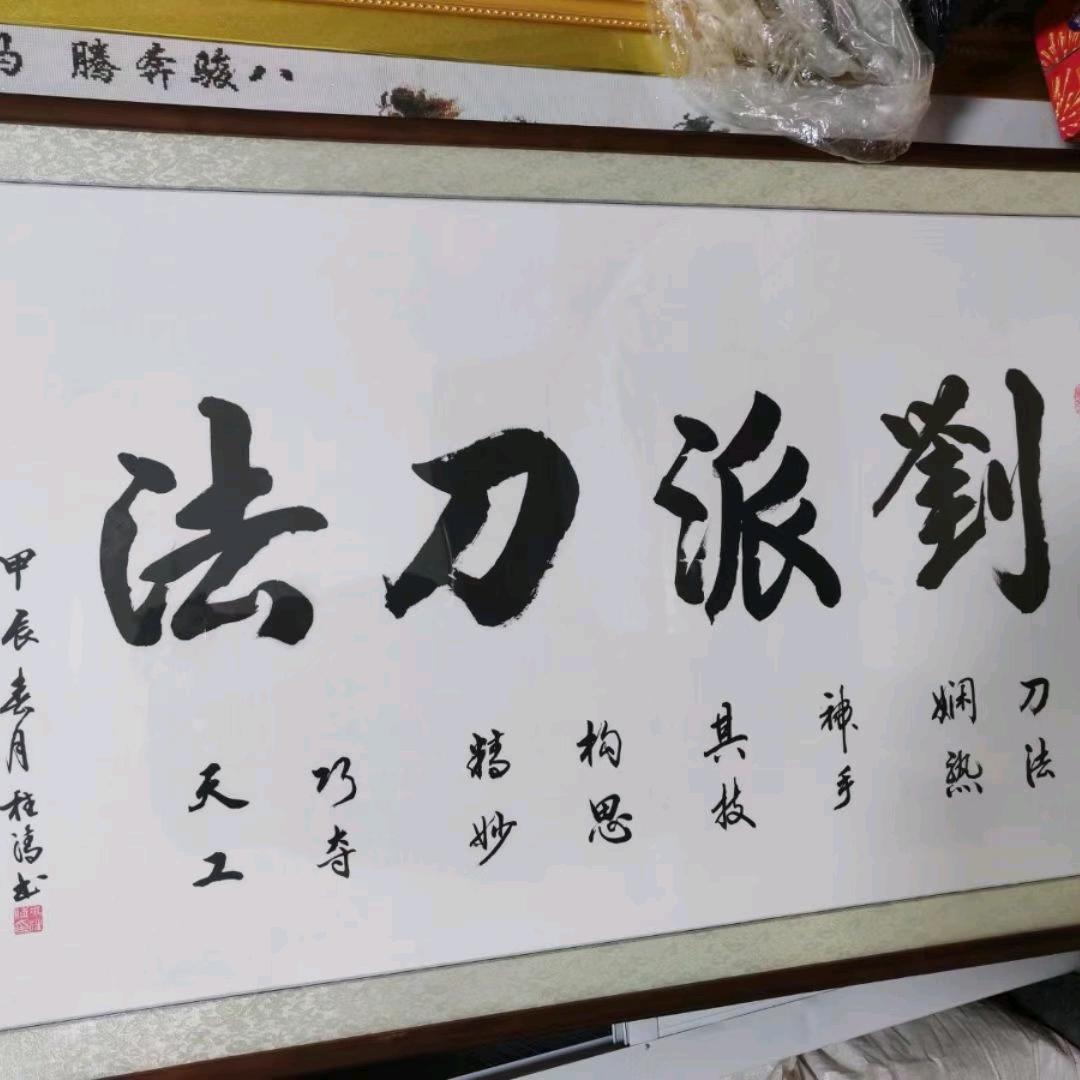 八駿奔騰
劉派刀法
刀法
娴熟
神手
其技
构思
精妙
巧夺
天工
甲辰春月桂涛书